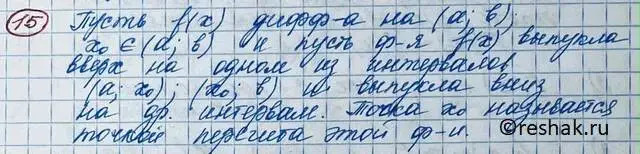 15 Пусть f(x) дифф-а на (a; b),
x₀ ∈ (a; b) и пусть ф-я f(x) выпукла
вверх на одном из интервалов
(a; x₀); (x₀; b) и выпукла вниз
на др. интервал. Точка x₀ называется
точкой перегиба этой ф-и.
©reshak.ru